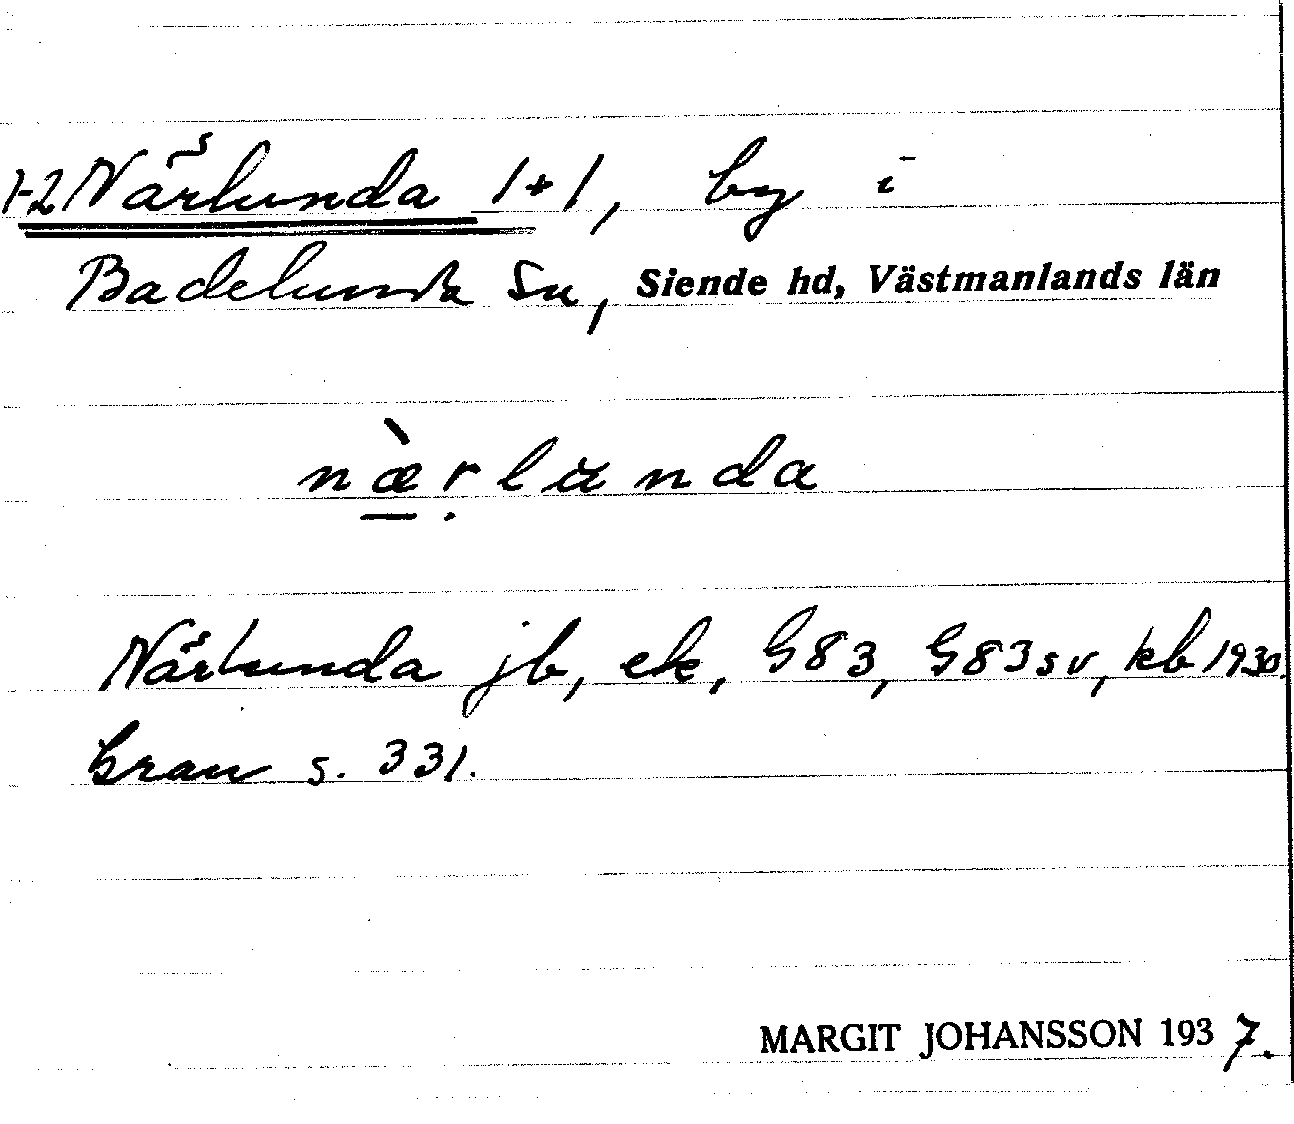 1-2 Närlunda 1+1, by i
Badelunda sn, Siende hd, Västmanlands län
næ̀rlunda
Närlunda jb, ek, G83, G83sv, kb 1930.
Gran s. 331.
MARGIT JOHANSSON 1937.